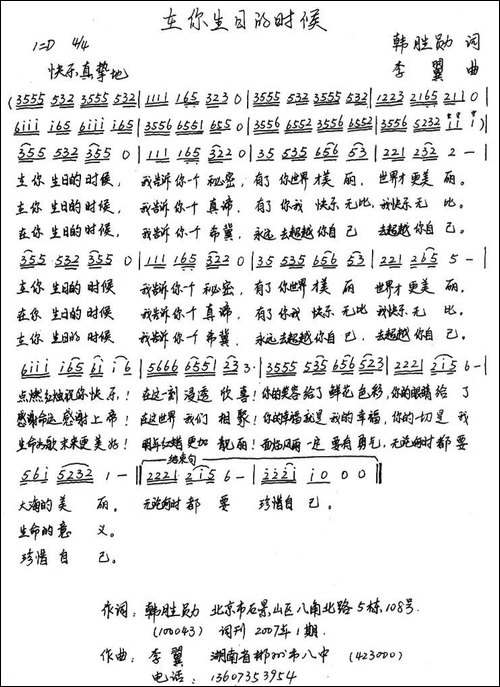 在你生日的时候
1=D 4/4
韩胜勋 词
快乐真挚地
李翼 曲
(3555 532 3555 532 | 1111 165 323 0 | 3555 532 3555 532 | 1223 2165 2110 |
6111 165 6111 165 | 3556 6551 655 0 | 3556 6552 3556 6552 | 3556 5232 1 1 )
355 532 355 0 | 111 165 322 0 | 35 535 656 53 | 221 232 2 - |
在你 生日的 时候, 我告诉你一个 秘密, 有了 你世界才美 丽, 世界才更美 丽。
在你 生日的 时候, 我告诉你一个 真谛, 有了 你我 快乐 无比, 我快乐 无 比。
在你 生日的 时候, 我告诉你一个 希冀, 永远 去超越 你自己 去超越 你自 己。
355 532 355 0 | 111 165 322 0 | 35 535 656 53 | 221 265 5 - |
在你 生日的 时候 我告诉你一个 秘密, 有了 你世界才美 丽 世界才更美 丽。
在你 生日的 时候 我告诉你一个 真谛, 有了 你我 快乐 无比, 我快乐 无 比。
在你 生日的 时候 我告诉你一个 希冀, 永远 去超越 你自 己, 去超越 你自 己。
6111 165 61 16 | 5666 6551 23 3· | 3555 535 656 523 | 2221 215 6 - |
点燃红烛祝你快乐! 在这一刻 浸透 欣喜! 你的笑容给了 鲜花色彩, 你的眼睛给 了
感谢命运 感谢上帝! 在这世界 我们 相聚! 你的幸福就是 我的幸福, 你的一切是 我
生命的歌 未来更美好! 明年红烛 更加 靓丽! 面临风雨一定 要有勇气, 无论何时都 要
结束句
561 5232 1 - || 2221 215 6 - | 2221 1 0 0 0 ||
大海的 美 丽。 无论何时 都 要 珍惜自 己。
生命的 意 义。
珍惜 自 己。
作词: 韩胜勋 北京市石景山区八角北路5栋108号.
(100043) 词刊 2007年1期.
作曲: 李翼 湖南省郴州市八中 (423000)
电话: 13607353954